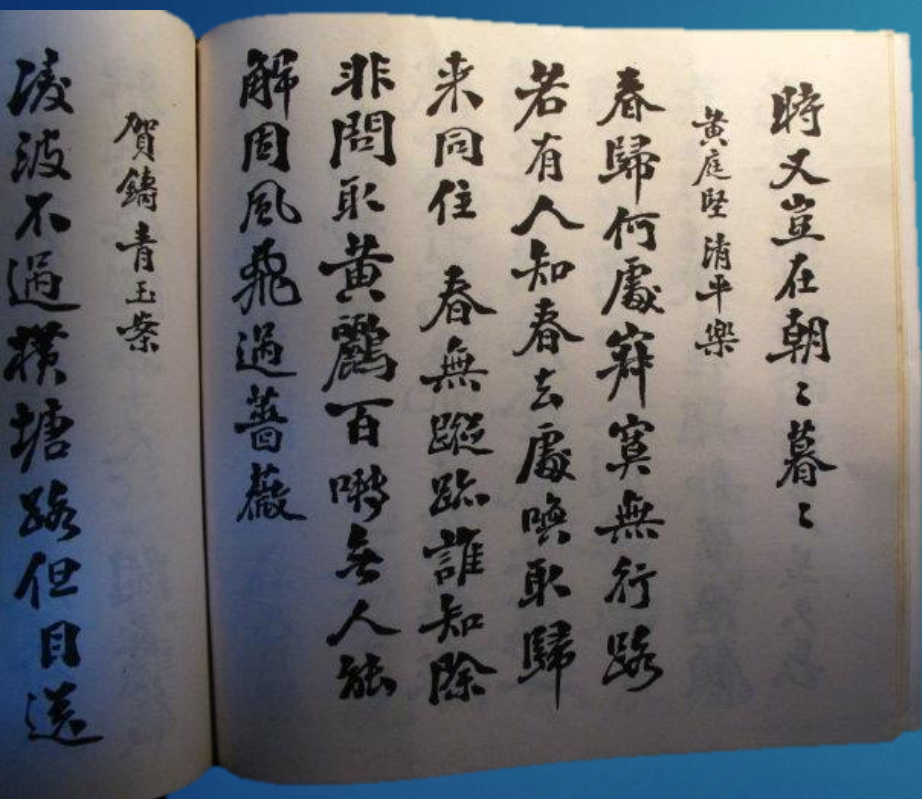 時又豈在朝〻暮〻
黄庭堅 清平樂
春歸何處寂寞無行路
若有人知春去處喚取歸
来同住 春無蹤跡誰知除
非問取黄鸝百囀無人能
解因風飛過薔薇
賀鑄青玉案
凌波不過横塘路但目送